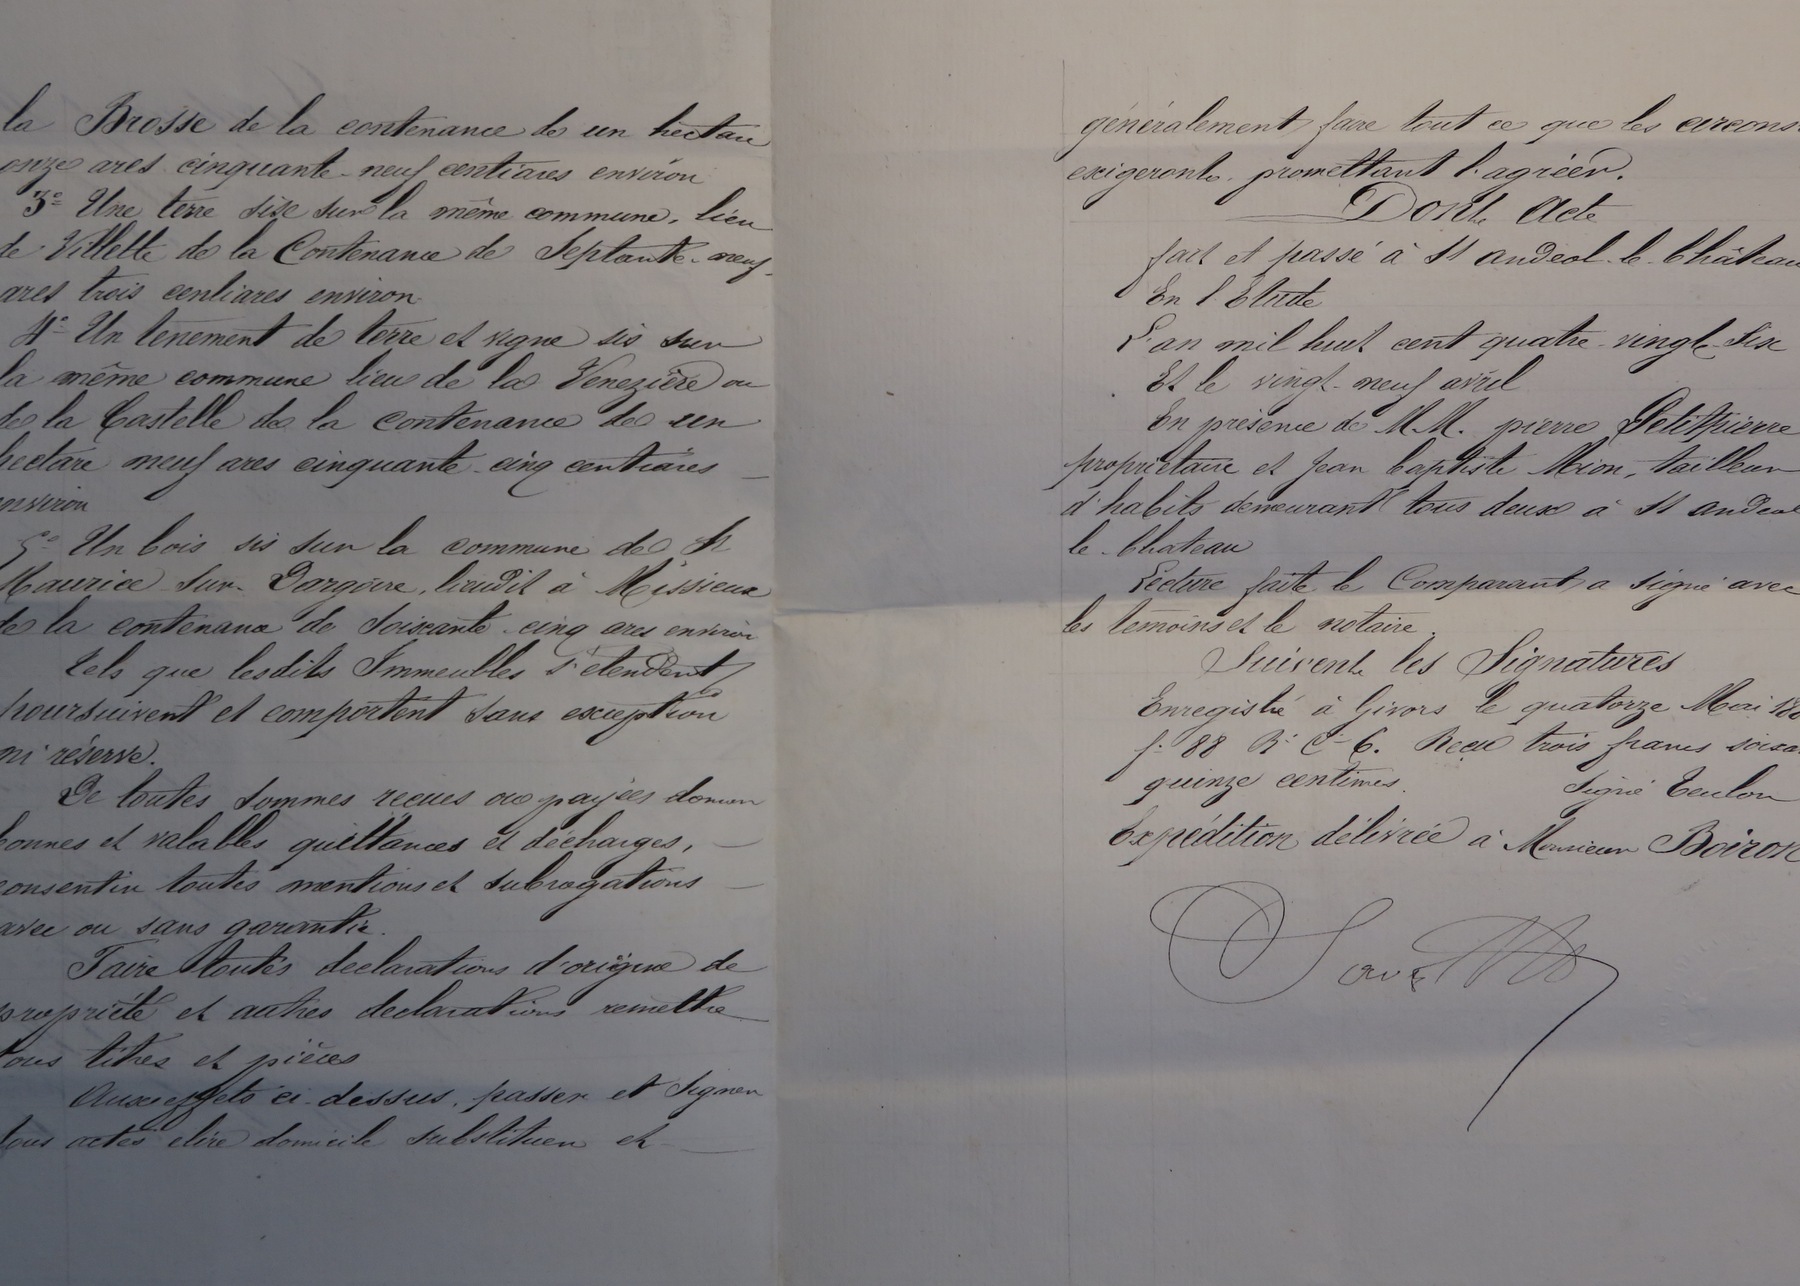 la Brosse de la contenance de un hectare
onze ares cinquante-neuf centiares environ
3e Une terre sise sur la même commune, lieu
de Villette de la Contenance de Septante-neuf
ares trois centiares environ
4e Un tenement de terre et vigne sis sur
la même commune lieu de la Venezière ou
de la Castelle de la contenance de un
hectare neuf ares cinquante-cinq centiares
environ
5e Un bois sis sur la commune de St
Maurice-sur-Dargoire, lieudit à Missieux
de la contenance de soixante-cinq ares environ
tels que lesdits Immeubles s'étendent
poursuivent et comportent sans exception
ni réserve.
De toutes sommes reçues ou payées donner
bonnes et valables quittances et décharges,
consentir toutes mentions et subrogations
avec ou sans garantie.
Faire toutes declarations d'origine de
propriété et autres declarations remettre
tous titres et pièces
Aux effets ci-dessus, passer et signer
tous actes elire domicile substituer et
généralement faire tout ce que les circons
exigeront, promettant l'agréer.
Dont Acte
fait et passé à St andéol-le-Château
En l'Etude
L'an mil huit cent quatre-vingt-six
Et le vingt-neuf avril
En présence de M.M. pierre Petitpierre
propriétaire et Jean Baptiste Mion, tailleur
d'habits demeurant tous deux à St andéol
le-Chateau
Lecture faite le Comparant a signé avec
les temoins et le notaire.
Suivent les Signatures
Enregistré à Givors le quatorze Mai 188
f. 88 Ro Ce 6. Reçu trois francs soixa
quinze centimes. Signé Teulon
Expédition délivrée à Monsieur Boiron